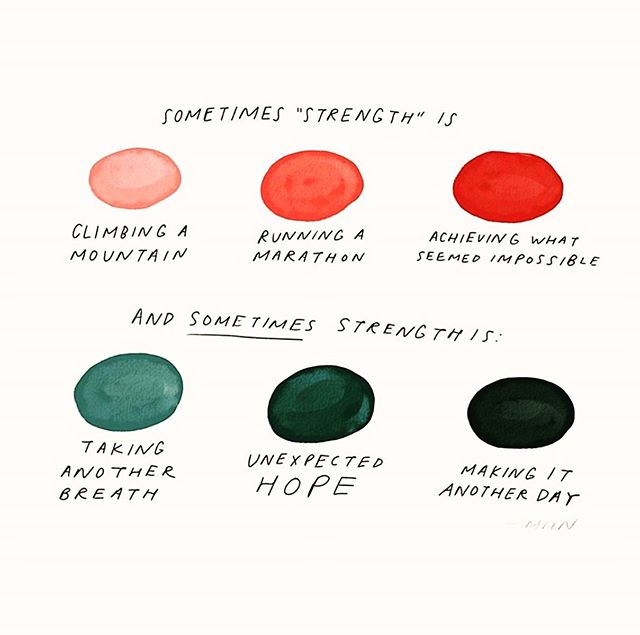 SOMETIMES "STRENGTH" IS
CLIMBING A
MOUNTAIN
RUNNING A
MARATHON
ACHIEVING WHAT
SEEMED IMPOSSIBLE
AND SOMETIMES STRENGTH IS:
TAKING
ANOTHER
BREATH
UNEXPECTED
HOPE
MAKING IT
ANOTHER DAY
— MHN